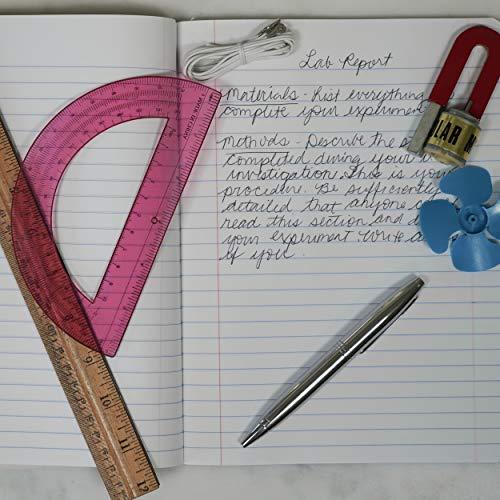 Lab Report
Materials - List everything
complete your experiment
Methods - Describe the
completed during your
investigation. This is your
procedure. Be sufficiently
detailed that anyone
read this section and
your experiment. Write
if you.
LAR
9
10
11
12